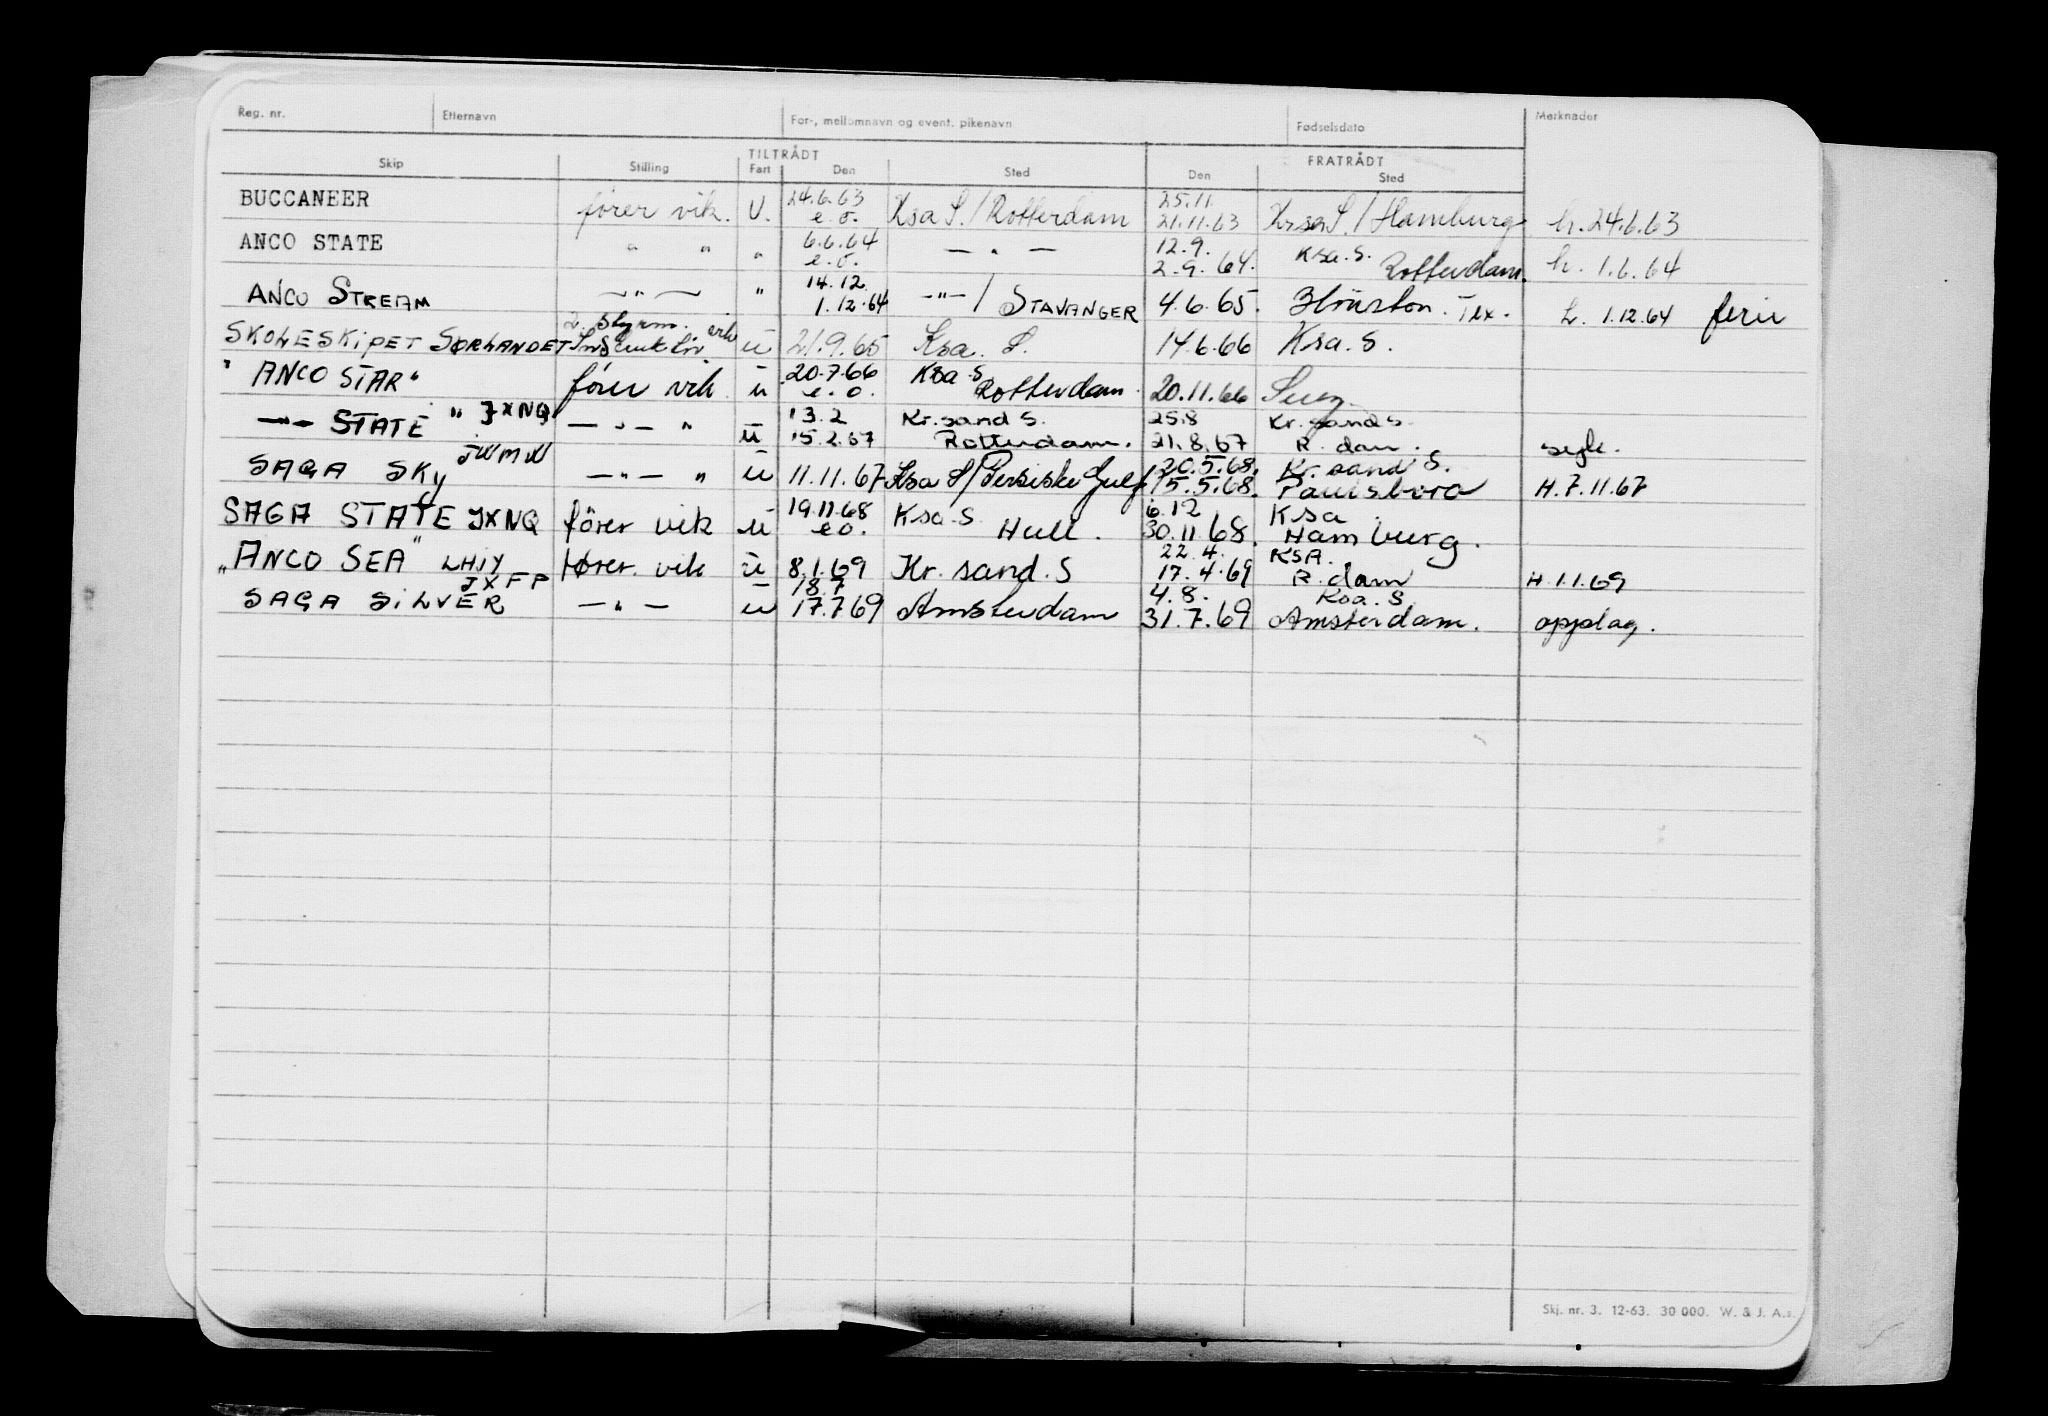 Reg. nr. Etternavn For-, mellomnavn og event. pikenavn Fødselsdato Merknader
TILTRÅDT FRATRÅDT
Skip Stilling Fart Den Sted Den Sted
BUCCANEER fører vik. U. 24.6.63 e.o. Ksa S./Rotterdam 25.11 21.11.63 Krsa S./Hamburg h. 24.6.63
ANCO STATE " " " 6.6.64 e.o. — " — 12.9. 2.9.64. Ksa. S. Rotterdam. h. 1.6.64
ANCO STREAM — " — " 14.12 1.12.64 — " —/STAVANGER 4.6.65. Houston. Tex. h. 1.12.64 ferie
SKOLESKIPET SØRLANDET 2. Styrm. Instruktör u 21.9.65 Ksa. S. 14.6.66 Ksa. S.
"ANCO STAR" fører vik u 20.7.66 e.o. Ksa. S Rotterdam. 20.11.66 Suez.
— " — STATE" JXNQ — " — " u 13.2 15.2.67 Kr.sand S. Rotterdam. 25.8 21.8.67 Kr.sand S. R.dam. sykr.
SAGA SKY JWMW — " — " u 11.11.67 Ksa S/Persiske Gulf 20.5.68. 15.5.68. Kr.sand S. Paulsboro H. 7.11.67
SAGA STATE JXNQ fører vik u 19.11.68 e.o. Ksa. S Hull. 6.12 30.11.68. Ksa. Hamburg.
"ANCO SEA" LHIY fører. vik u 8.1.69 Kr. sand. S 22.4. 17.4.69 KSA. R.dam H. 1.1.69
SAGA SILVER JXFP — " — u 18.7 17.7.69 Amsterdam 4.8. 31.7.69 Ksa. S Amsterdam. opplag.
Skj. nr. 3. 12-63. 30 000. W. & J. A.s.